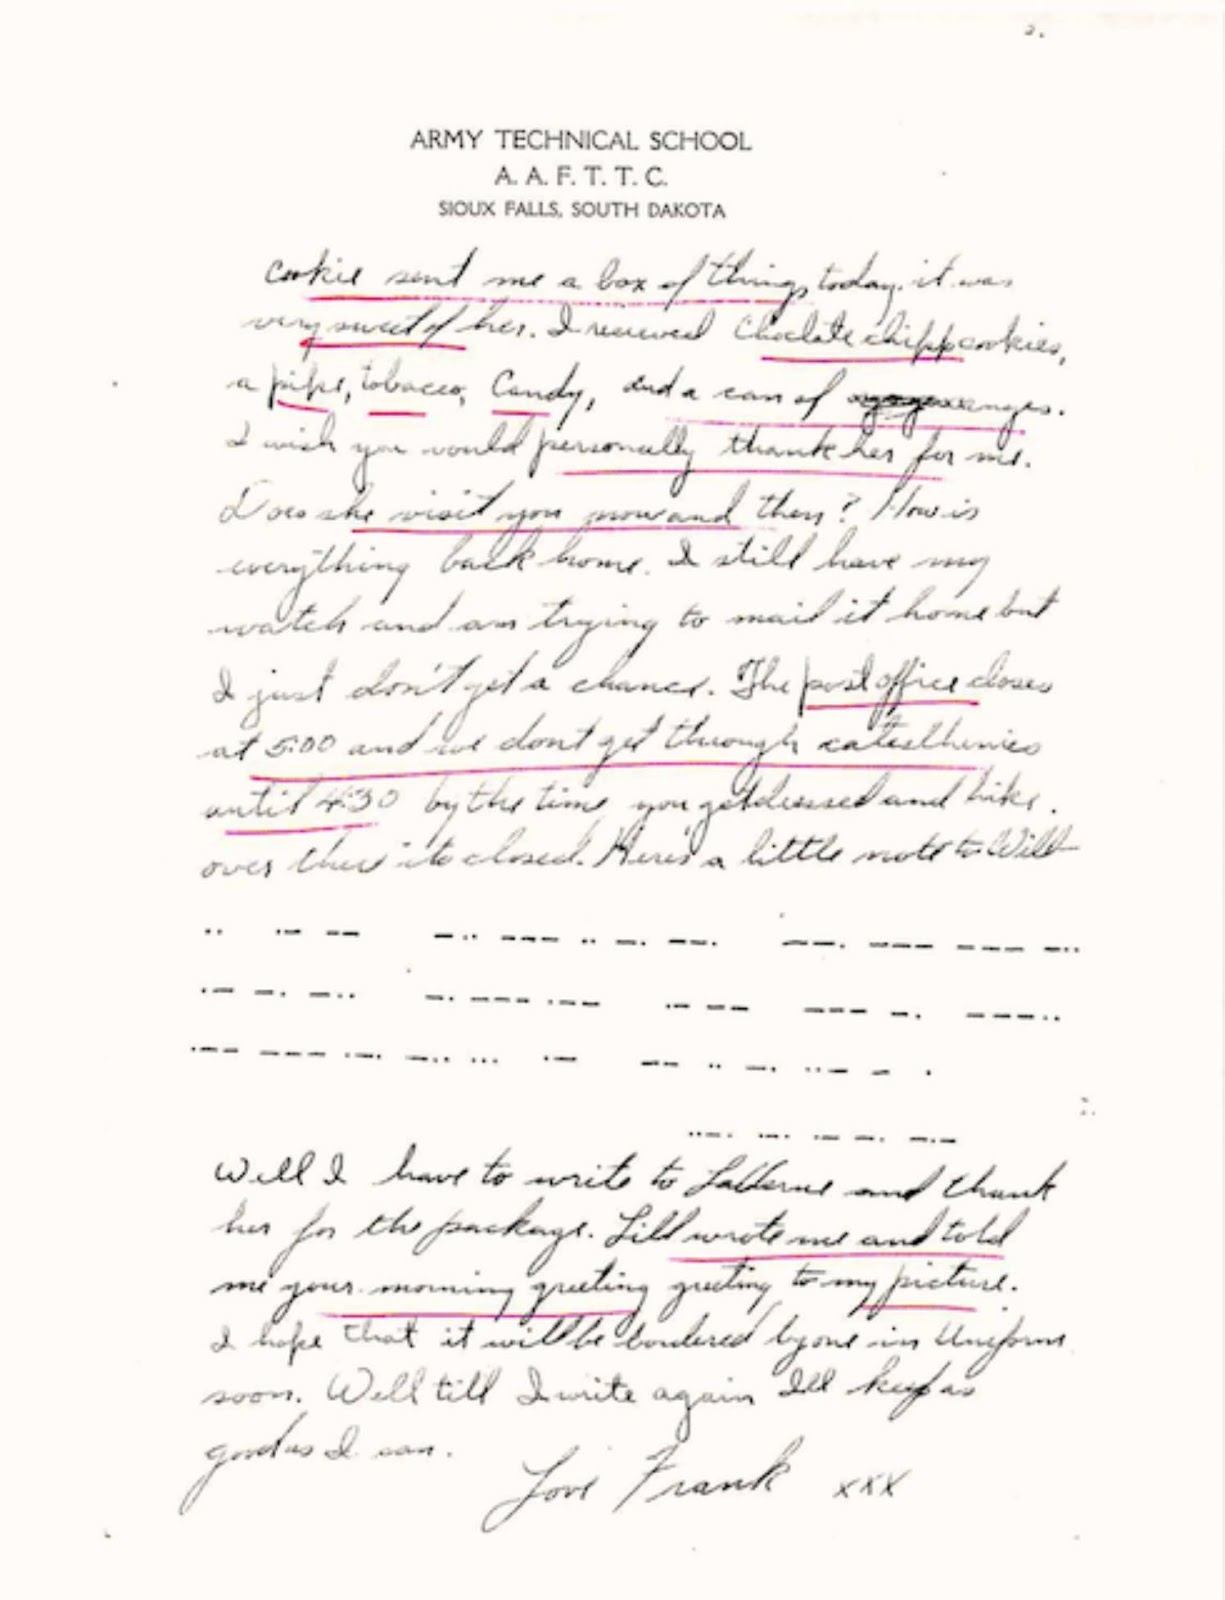 2.
ARMY TECHNICAL SCHOOL
A. A. F. T. T. C.
SIOUX FALLS, SOUTH DAKOTA
Cookie sent me a box of things today. it was
very sweet of her. I received Choclate chipp cookies,
a pipe, tobacco, Candy, and a can of oranges.
I wish you would personally thank her for me.
Does she visit you now and then? How is
everything back home. I still have my
watch and am trying to mail it home but
I just don't get a chance. The post office closes
at 5:00 and we dont get through
until 4:30 by the time you get dressed and hike
over there its closed. Here's a little note to Will
.. .-- -- -.. --- .. -. --. --. --- --- -..
.-- -. -.. -. --- .-- --- --- -. ---..
.-- --- .-. -.. ... -- .. -. ..- - .
Well I have to write to LaVerne and thank
her for the package. Lill wrote me and told
me your morning greeting greeting to my picture.
I hope that it will be bordered by one in Uniform
soon. Well till I write again Ill keep as
good as I can.
Love Frank xxx